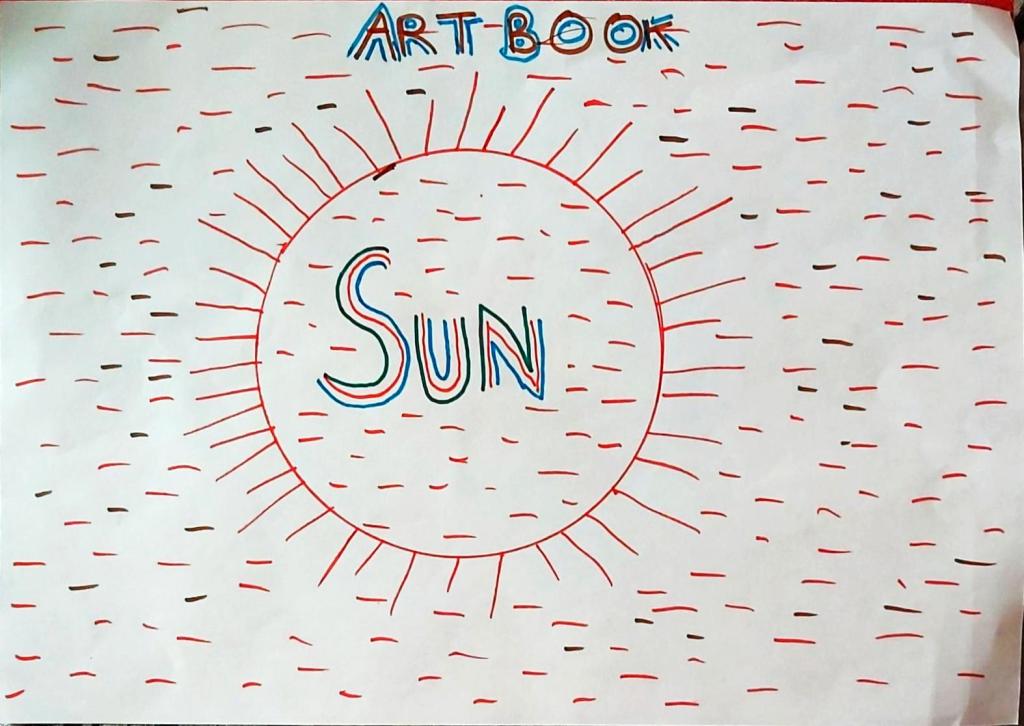 ART BOOK
SUN